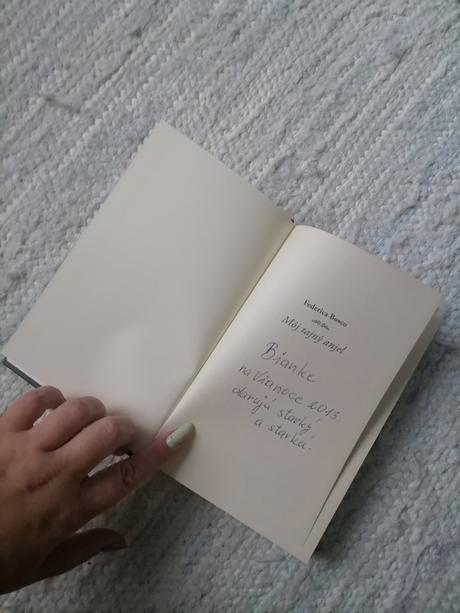 Federica Bosco
Môj tajný anjel
Bianke
na Vianoce 2013
darujú starký
a starka.